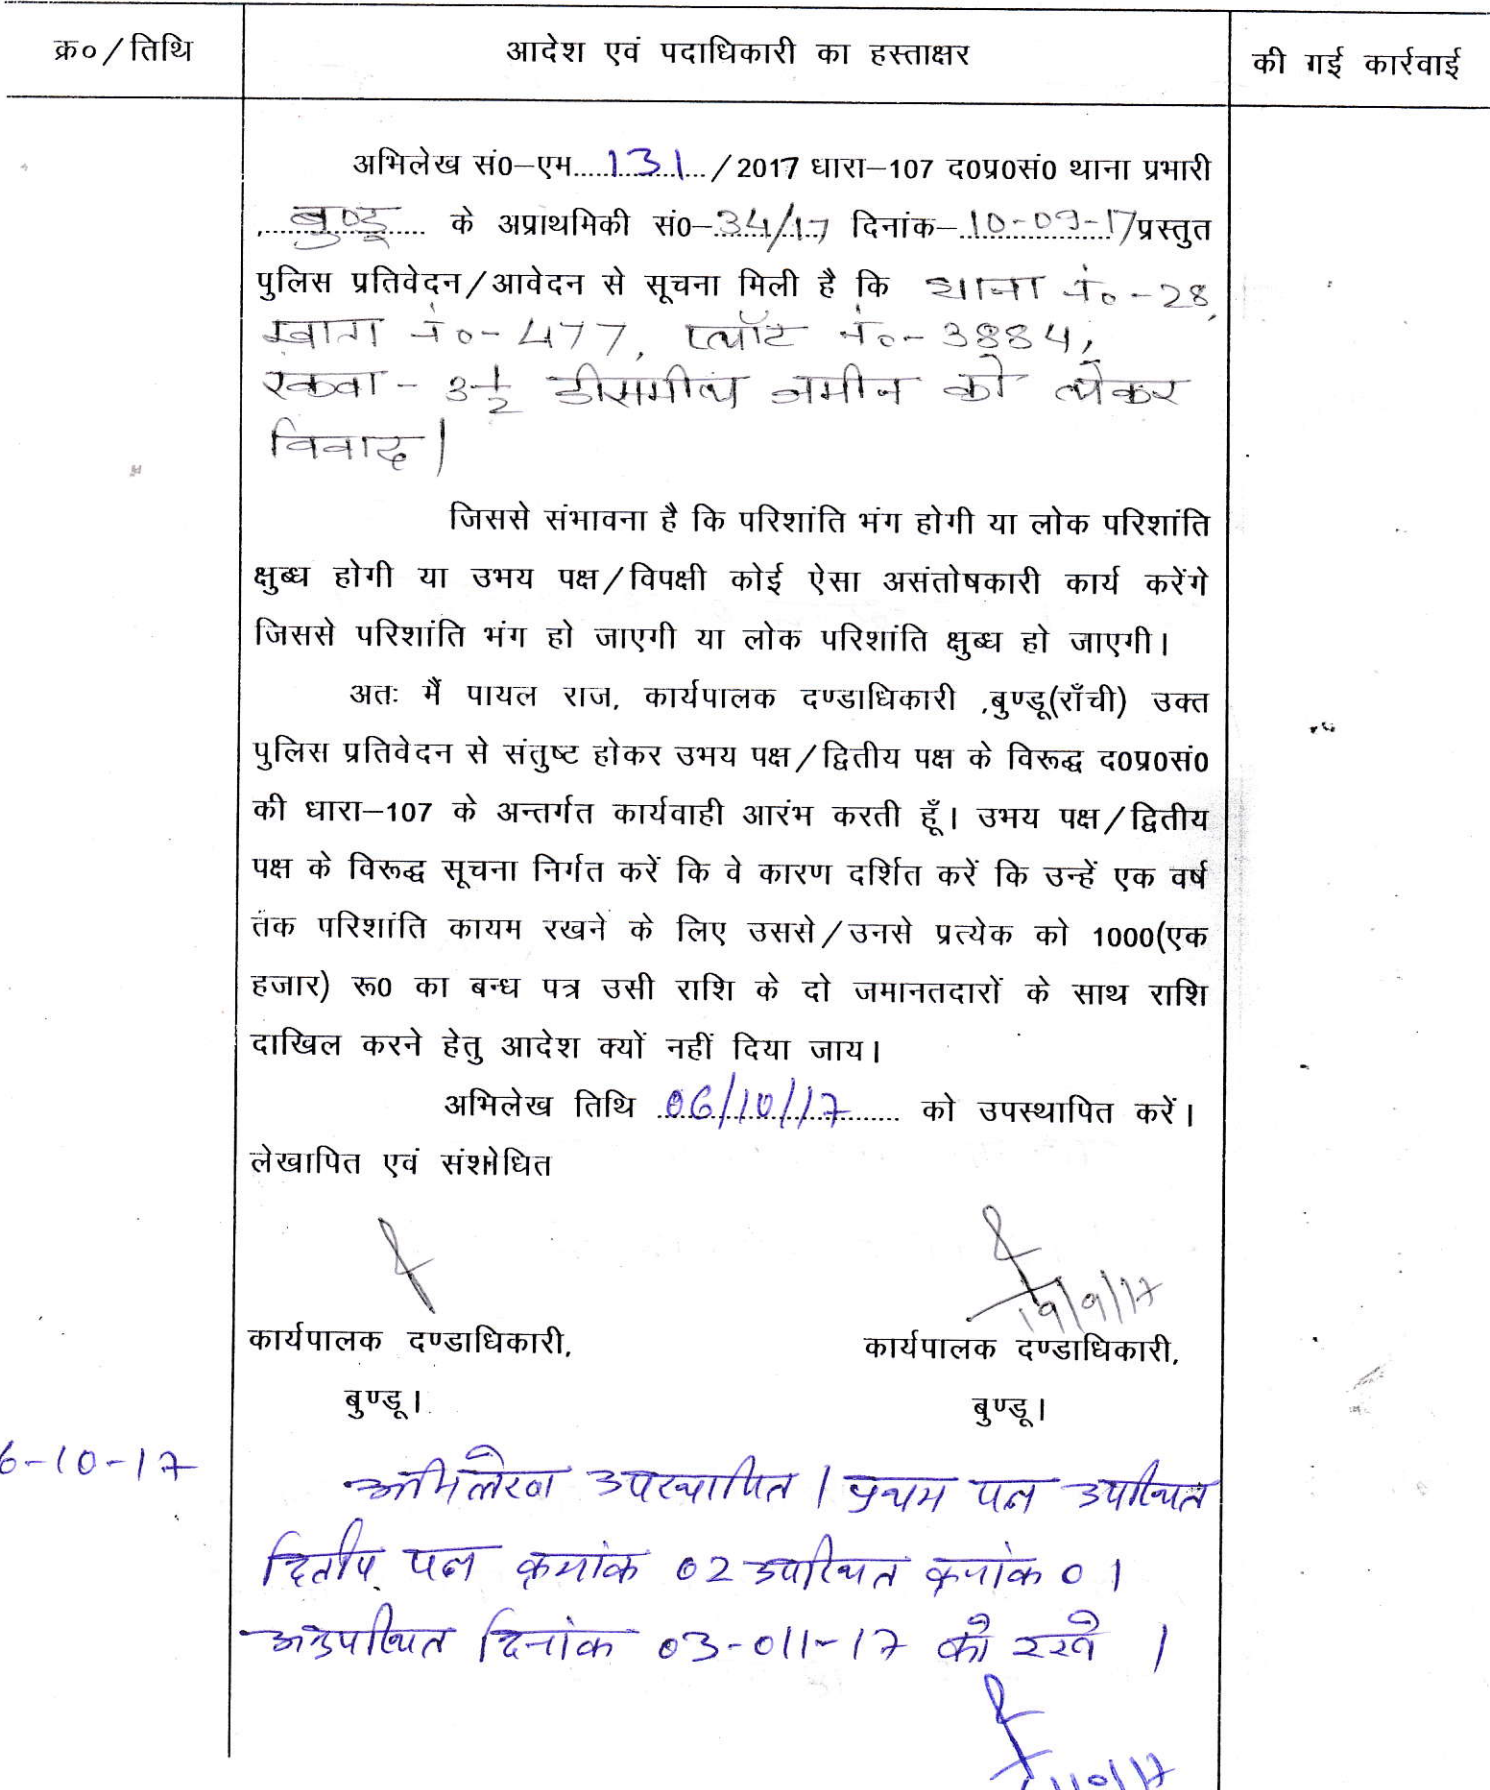 क्र०/तिथि
आदेश एवं पदाधिकारी का हस्ताक्षर
की गई कार्रवाई
अभिलेख सं0–एम....131..../2017 धारा–107 द0प्र0सं0 थाना प्रभारी
बुण्डू के अप्राथमिकी सं0–34/17 दिनांक–10-09-17 प्रस्तुत
पुलिस प्रतिवेदन/आवेदन से सूचना मिली है कि थाना नं०-28,
खाता नं०-477, प्लॉट नं०-3884,
रकवा - 3 1/2 डीसमील जमीन को लेकर
विवाद।
जिससे संभावना है कि परिशांति भंग होगी या लोक परिशांति
क्षुब्ध होगी या उभय पक्ष/विपक्षी कोई ऐसा असंतोषकारी कार्य करेंगे
जिससे परिशांति भंग हो जाएगी या लोक परिशांति क्षुब्ध हो जाएगी।
अतः मैं पायल राज, कार्यपालक दण्डाधिकारी ,बुण्डू(राँची) उक्त
पुलिस प्रतिवेदन से संतुष्ट होकर उभय पक्ष/द्वितीय पक्ष के विरूद्ध द0प्र0सं0
की धारा–107 के अन्तर्गत कार्यवाही आरंभ करती हूँ। उभय पक्ष/द्वितीय
पक्ष के विरूद्ध सूचना निर्गत करें कि वे कारण दर्शित करें कि उन्हें एक वर्ष
तक परिशांति कायम रखने के लिए उससे/उनसे प्रत्येक को 1000(एक
हजार) रू0 का बन्ध पत्र उसी राशि के दो जमानतदारों के साथ राशि
दाखिल करने हेतु आदेश क्यों नहीं दिया जाय।
अभिलेख तिथि 06/10/17 को उपस्थापित करें।
लेखापित एवं संशोधित
19/9/17
कार्यपालक दण्डाधिकारी,
कार्यपालक दण्डाधिकारी,
बुण्डू।
बुण्डू।
6-10-17
अभिलेख उपस्थापित। प्रथम पक्ष उपस्थित
द्वितीय पक्ष क्रमांक 02 उपस्थित क्रमांक 01
अनुपस्थित दिनांक 03-011-17 को रखें।